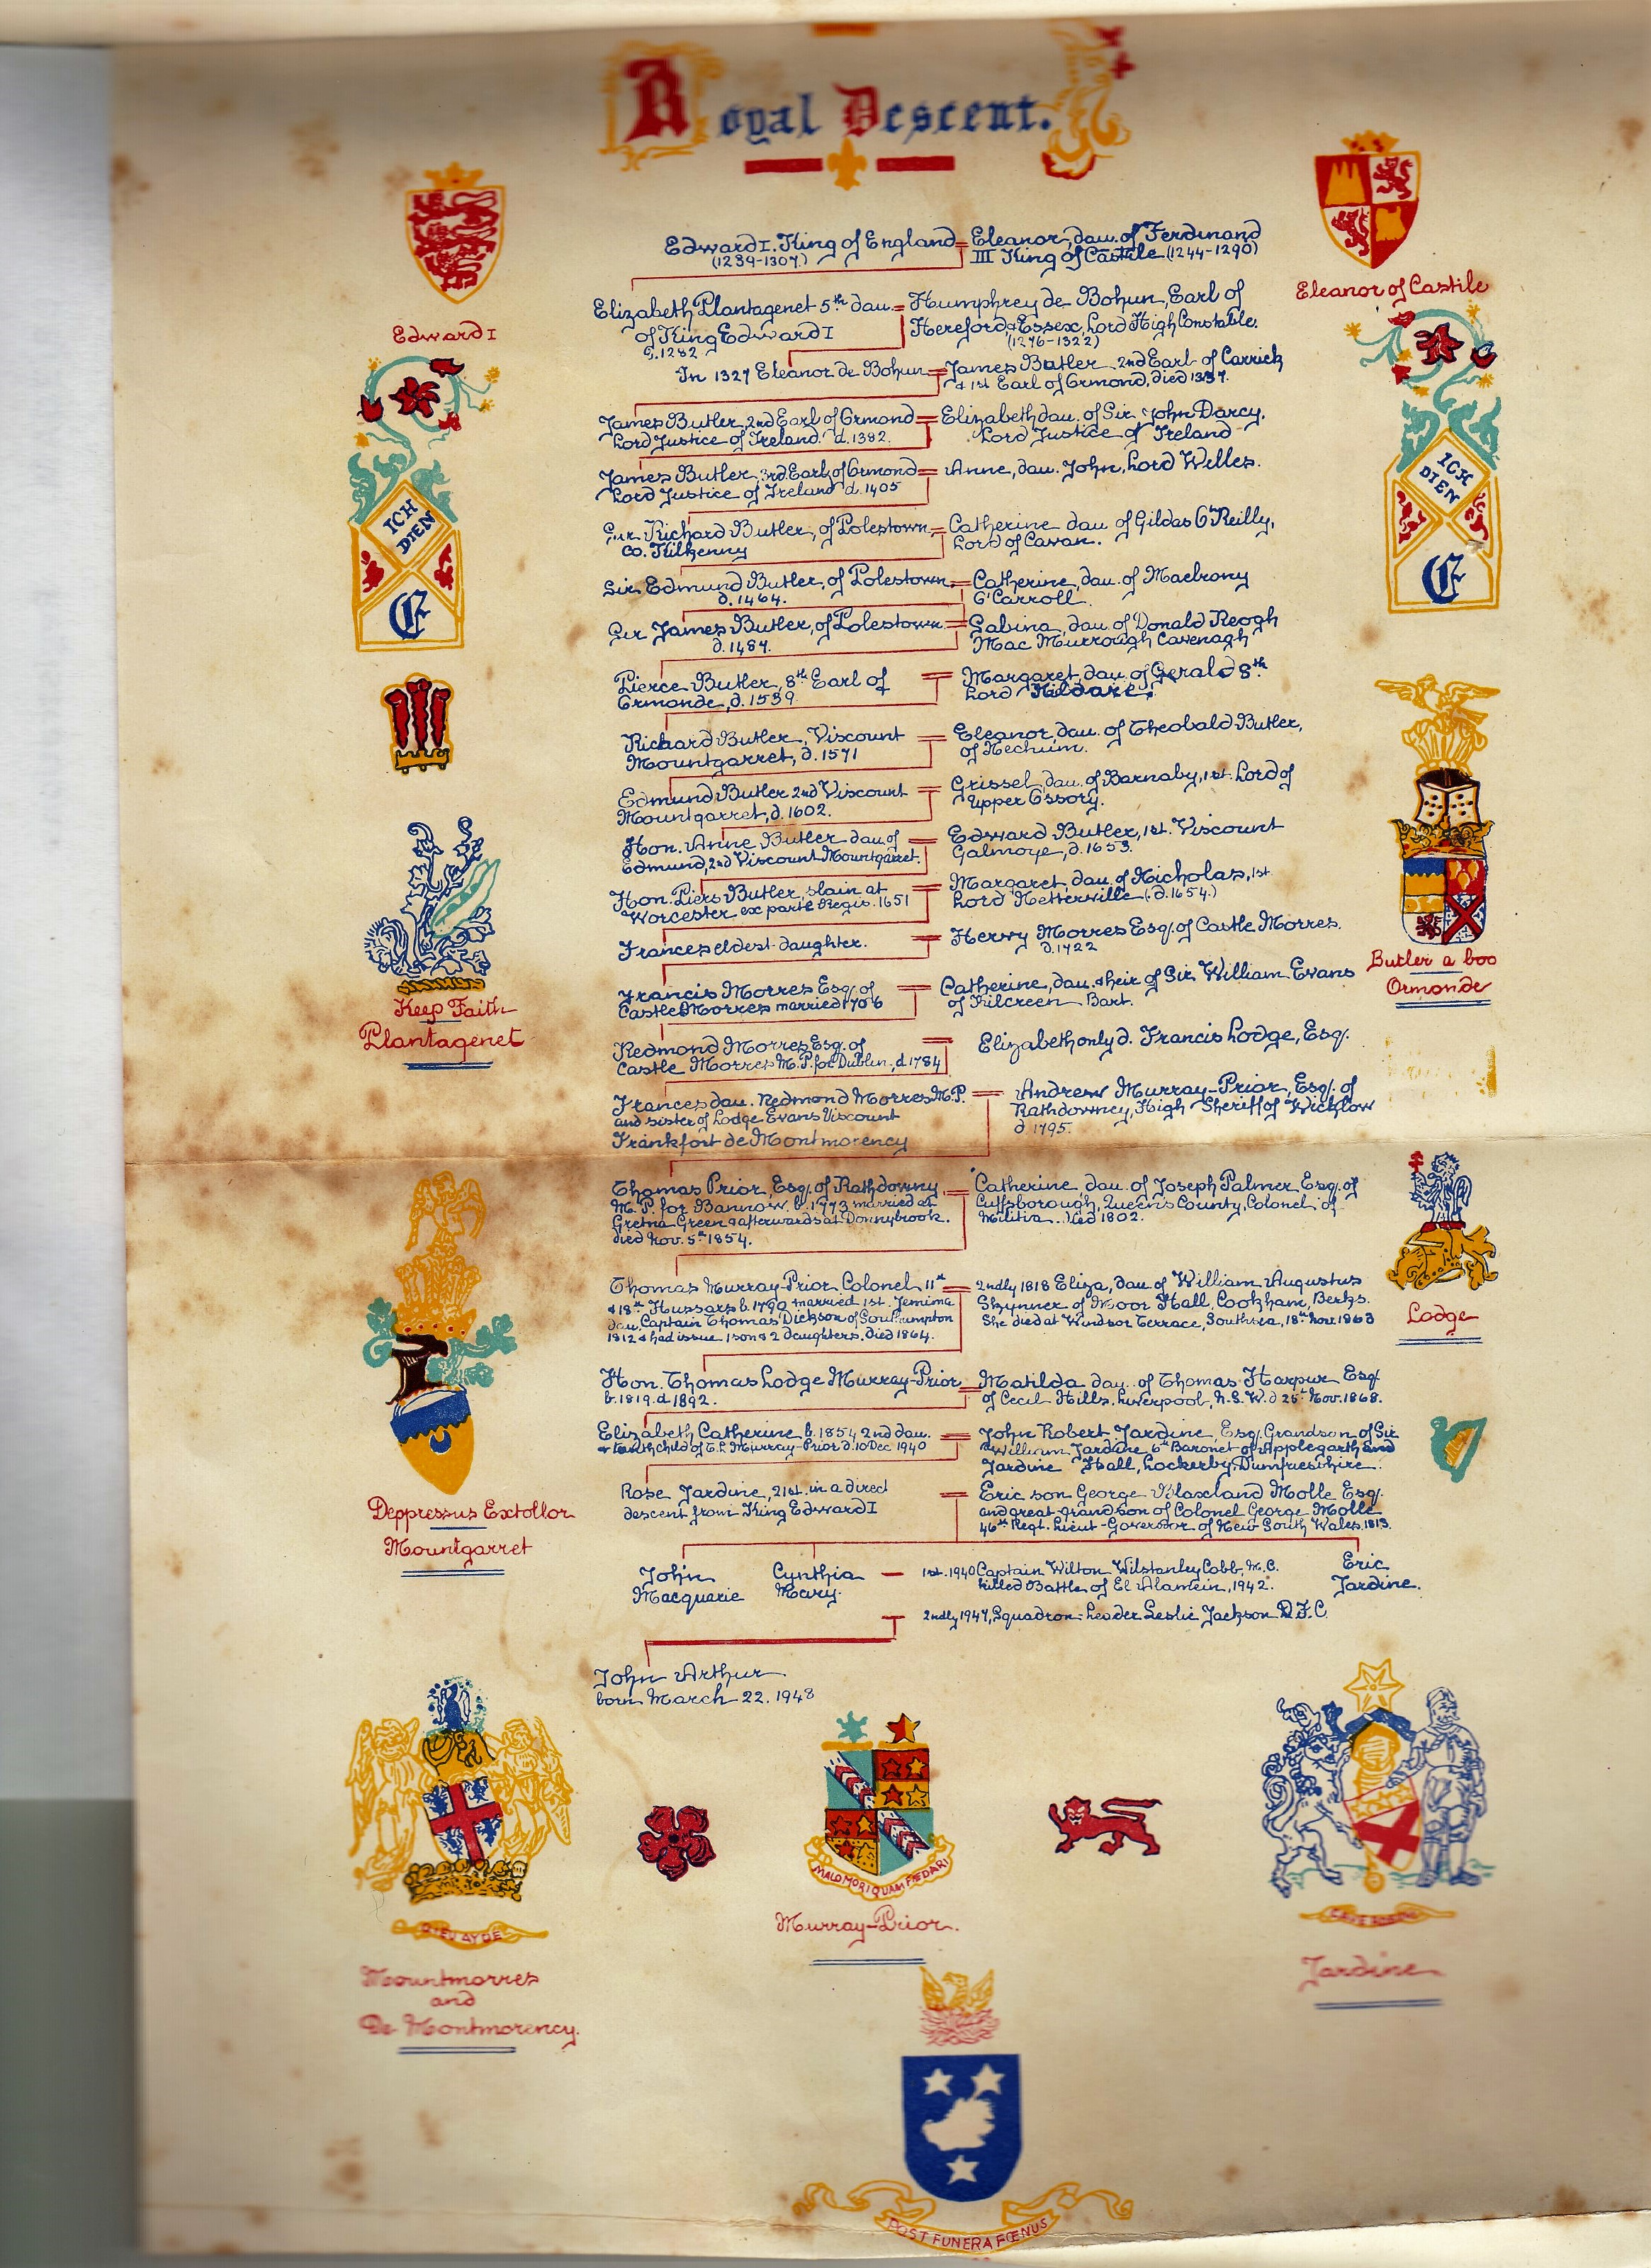 Royal Descent.
Edward I. King of England = Eleanor, dau. of Ferdinand
(1239-1307) III King of Castile (1244-1290)
Eleanor of Castile
Edward I
Elizabeth Plantagenet 5th dau. = Humphrey de Bohun, Earl of
of King Edward I Hereford & Essex, Lord High Constable.
b. 1282 (1276-1322)
In 1327 Eleanor de Bohun = James Butler 2nd Earl of Carrick
& 1st Earl of Ormond, died 1337.
James Butler, 2nd Earl of Ormond = Elizabeth dau. of Sir John Darcy,
Lord Justice of Ireland. d. 1382. Lord Justice of Ireland
James Butler, 3rd Earl of Ormond = Anne, dau. John, Lord Welles.
Lord Justice of Ireland d. 1405
ICH
DIEN
E
ICH
DIEN
E
Sir Richard Butler, of Polestown, = Catherine dau of Gildas O'Reilly,
Co. Kilkenny Lord of Cavan.
Sir Edmund Butler, of Polestown, = Catherine, dau. of Maelrony
d. 1464. O'Carroll.
Sir James Butler, of Polestown = Sabina, dau. of Donald Reogh
d. 1487. Mac Murrough Cavenagh
Pierce Butler, 8th Earl of = Margaret, dau. of Gerald 8th
Ormonde, d. 1539. Lord Kildare.
Richard Butler, Viscount = Eleanor, dau. of Theobald Butler,
Mountgarret, d. 1571 of Nechum.
Edmund Butler 2nd Viscount = Grissel, dau. of Barnaby, 1st. Lord of
Mountgarret, d. 1602. Upper Ossory.
Hon. Anne Butler dau of = Edward Butler, 1st. Viscount
Edmund, 2nd Viscount Mountgarret. Galmoye, d. 1653.
Hon. Piers Butler, slain at = Margaret, dau. of Nicholas, 1st
Worcester ex parte Regis. 1651 Lord Netterville (d. 1654.)
Frances eldest daughter. = Hervy Morres Esq. of Castle Morres.
d. 1722
Butler a boo
Ormonde
Keep Faith
Plantagenet
Francis Morres Esq. of = Catherine, dau. & heir of Sir William Evans
Castle Morres married 1706 of Kilcreen Bart.
Redmond Morres Esq. of = Elizabeth only d. Francis Lodge, Esq.
Castle Morres M.P. for Dublin, d 1784
Frances dau. Redmond Morres M.P. = Andrew Murray-Prior, Esq. of
and sister of Lodge Evans Viscount Rathdowney, High Sheriff of Wicklow
Frankfort de Montmorency d 1795.
Thomas Prior, Esq. of Rathdowny = Catherine dau of Joseph Palmer Esq. of
M.P. for Bannow. b. 1773 married at Cuffsborough, Queen's County, Colonel of
Gretna Green & afterwards at Donnybrook. Militia. Died 1802.
died Nov. 5th 1854.
Thomas Murray-Prior Colonel 11th = 2ndly 1818 Eliza, dau of William Augustus
& 18th Hussars b. 1790 married 1st. Jemima Skynner of Moor Hall, Cookham, Berks.
dau. Captain Thomas Dickson of Southampton She died at Windsor Terrace, Southsea, 18th Nov. 1863
1812 & had issue 1 son & 2 daughters. died 1864.
Lodge
Hon. Thomas Lodge Murray-Prior = Matilda dau. of Thomas Harpur Esq
b. 1819. d 1892. of Cecil Hills, Liverpool, N.S.W. d 25th Nov. 1868.
Elizabeth Catherine b. 1854 2nd dau. = John Robert Jardine, Esq. Grandson of Sir
& tenth child of T.L. Murray-Prior d. 10 Dec 1940 William Jardine 6th Baronet of Applegarth and
Jardine Hall, Lockerby, Dumfrieshire.
Rose Jardine, 21st. in a direct = Eric son George Blaxland Molle Esq.
descent from King Edward I and great-grandson of Colonel George Molle
46th Regt. Lieut-Governor of New South Wales, 1813.
Deppressus Extollor
Mountgarret
John Cynthia — 1st. 1940 Captain Wilton Wilstanley Cobb, M.C. Eric
Macquarie Mary. killed Battle of El Alamein, 1942. Jardine.
2ndly 1947, Squadron-Leader Leslie Jackson D.F.C.
John Arthur
born March 22. 1948
MALO MORI QUAM FŒDARI
Murray-Prior.
DIEU AYDE
CAVE ADSUM
Mountmorres
and
De Montmorency.
Jardine
POST FUNERA FŒNUS